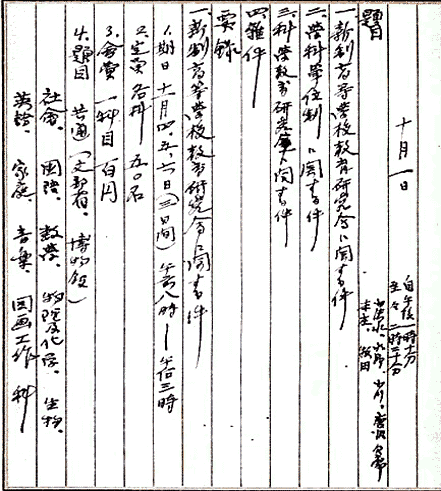 十月一日
自午後一時十分
至々 二時三十分
題目
一、新制高等学校教育研究会ニ関する件
二、学科単位制ニ関する件
三、科学教育研究室ニ関する件
四、雑件
要録
一、新制高等学校教育研究会ニ関する件
1、期日 十月四、五、六日(三日間)午前八時—午后三時
2、定員 各科 五〇名
3、会費 一科目 百円
4、題目 共通(文部省、博物館)
社会、国語、数学、物理及化学、生物、
英語、家庭、音楽、図画工作科